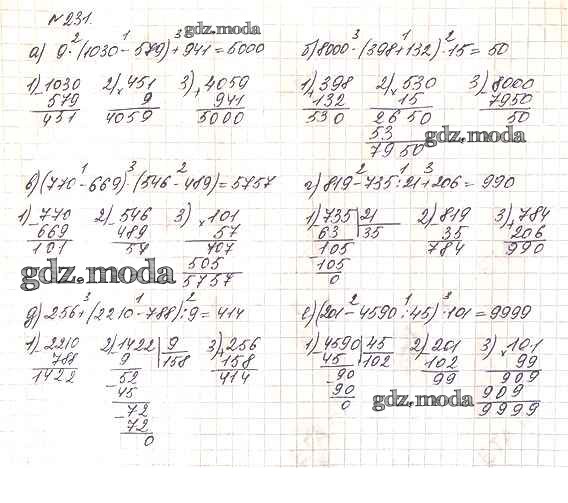 № 231.
gdz.moda
а) 9·(1030-579)+941=5000
б) 8000-(398+132)·15=50
1) 1030 2) 451 3) 4059
579 9 941
451 4059 5000
1) 398 2) 530 3) 8000
132 15 7950
530 2650 50
53
7950
gdz.moda
в) (770-669)·(546-489)=5757
г) 819-735:21+206=990
1) 770 2) 546 3) 101
669 489 57
101 57 707
505
5757
1) 735 21 2) 819 3) 784
63 35 35 206
105 784 990
105
0
gdz.moda
д) 256+(2210-788):9=414
е) (201-4590:45)·101=9999
1) 2210 2) 1422 9 3) 256
788 9 158 158
1422 52 414
45
72
72
0
1) 4590 45 2) 201 3) 101
45 102 102 99
90 99 909
90 909
0 9999
gdz.moda